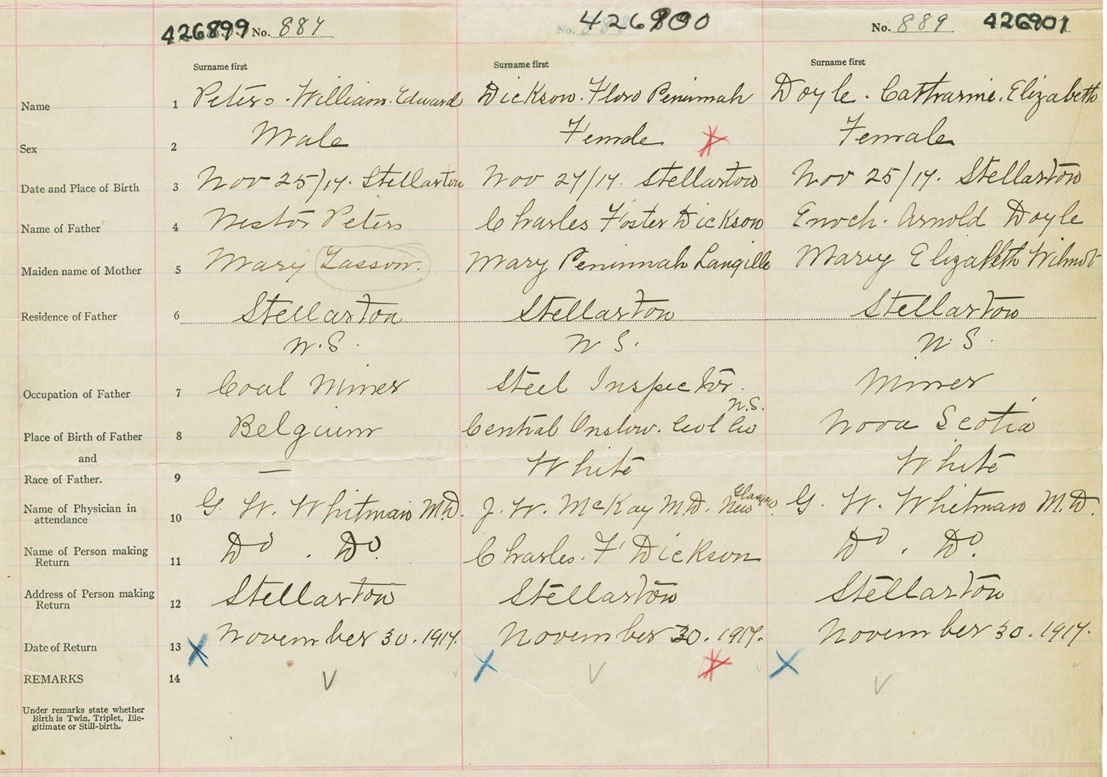 426899 No. 887
426900
No. 889 426901
Surname first Surname first Surname first
Name 1 Peters. William. Edward Dickson. Flora Peninnah Doyle. Catharine. Elizabeth
Sex 2 Male Female Female
Date and Place of Birth 3 Nov 25/17. Stellarton Nov 27/17. Stellarton Nov 25/17. Stellarton
Name of Father 4 Nestor Peters Charles Foster Dickson Enoch. Arnold Doyle
Maiden name of Mother 5 Mary Lasson. Mary Peninnah Langille Mary Elizabeth Wilmot
Residence of Father 6 Stellarton Stellarton Stellarton
N.S. N S. N S.
Occupation of Father 7 Coal Miner Steel Inspector. Miner
N.S.
Place of Birth of Father 8 Belgium Central Onslow. Col Co Nova Scotia
and
Race of Father. 9 — White White
Name of Physician in
attendance 10 G. W. Whitman M.D. J. W. McKay M.D. New Glasgow G. W. Whitman M.D.
Name of Person making
Return 11 Do . Do. Charles. F Dickson Do . Do.
Address of Person making
Return 12 Stellarton Stellarton Stellarton
Date of Return 13 November 30. 1917. November 30. 1917. November 30. 1917.
REMARKS 14
Under remarks state whether
Birth is Twin, Triplet, Ille-
gitimate or Still-birth.